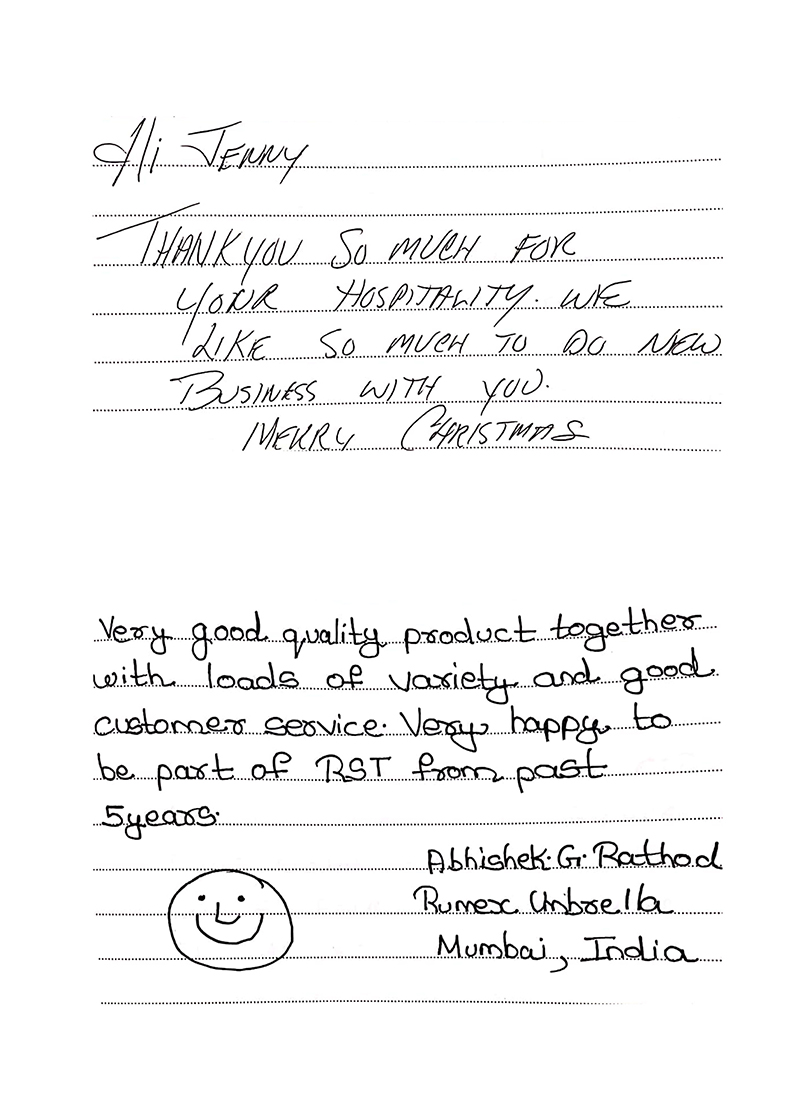 Hi JENNY
THANK YOU SO MUCH FOR
YOUR HOSPITALITY. WE
LIKE SO MUCH TO DO NEW
BUSINESS WITH YOU.
MERRY CHRISTMAS
Very good quality product together
with loads of variety and good
customer service. Very happy to
be part of RST from past
5years.
Abhishek.G.Rathod
Rumex Unbrella
Mumbai, India